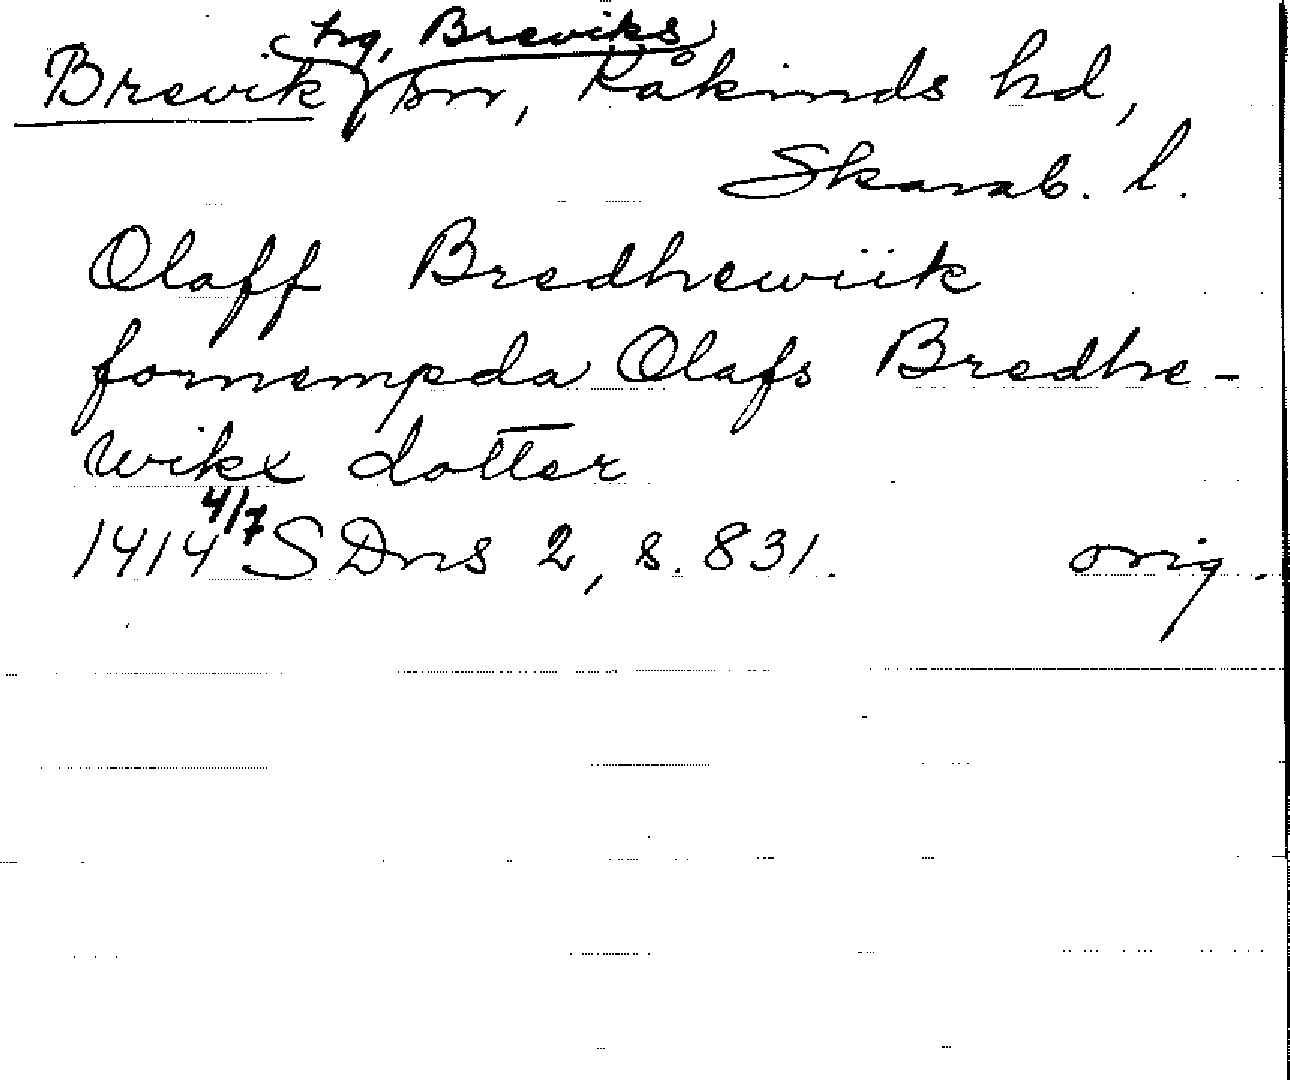 trg, Breviks
Brevik sn, Kåkinds hd,
Skarab. l.
Olaff Bredhewiik
fornempda Olafs Bredhe-
wikx dotter
1414 4/7 SDns 2, s. 831. orig.